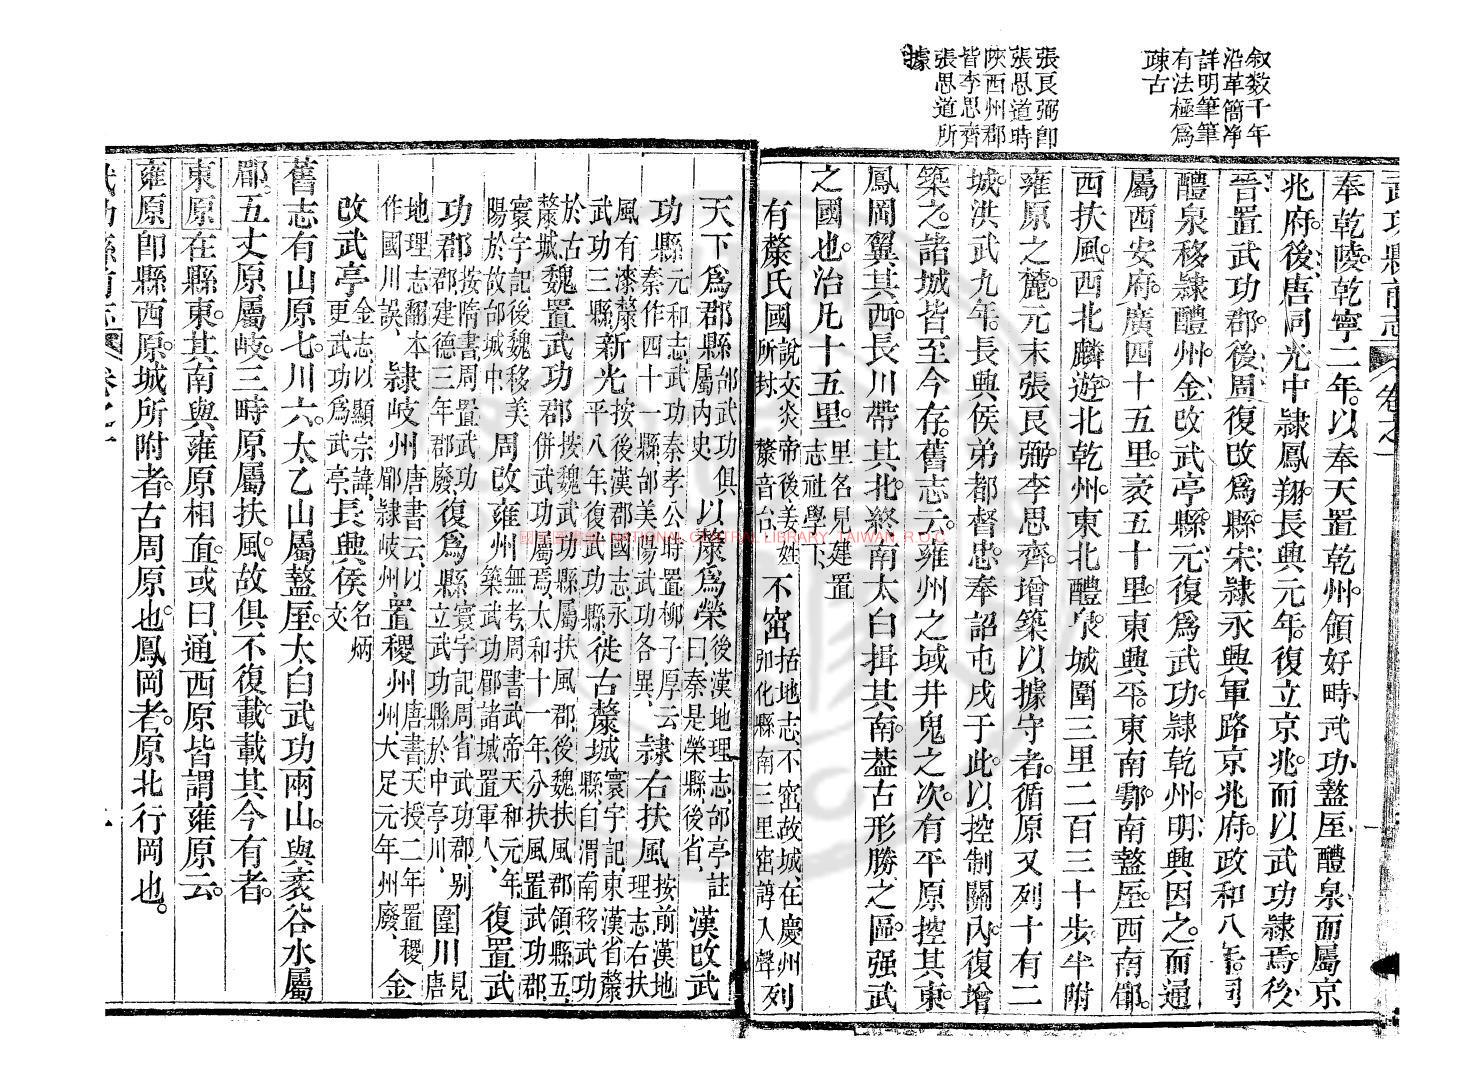 敘数千年
沿革簡净
詳明筆筆
有法極為
疎古
張良弼卽
張思道時
陜西州郡
皆李思齊
張思道所
據
武功縣前志 卷之一
奉乾陵乾寧二年以奉天置乾州領好畤武功盩厔醴泉而屬京
兆府後唐同光中隷鳳翔長興元年復立京兆而以武功隷焉後
晉置武功郡後周復改爲縣宋隷永興軍路京兆府政和八年同
醴泉移隷醴州金改武亭縣元復爲武功隷乾州明興因之而通
屬西安府廣四十五里袤五十里東興平東南鄠南盩厔西南郿
西扶風西北麟遊北乾州東北醴泉城圍三里二百三十步半附
雍原之麓元末張良弼李思齊增築以據守者循原又列十有二
城洪武九年長興侯弟都督忠奉詔屯戍于此以控制關內復增
築之諸城皆至今存舊志云雍州之域井鬼之次有平原控其東
鳳岡翼其西長川帶其北終南太白揖其南蓋古形勝之區强武
之國也治凡十五里里名見建置志社學下
有斄氏國說文炎帝後姜姓所封斄音台不窋括地志不窋故城在慶州弘化縣南三里窋諄入聲列
天下爲郡縣邰武功俱屬內史以斄爲榮後漢地理志邰亭註曰秦是榮縣後省漢改武
功縣元和志武功秦孝公時置柳子厚云秦作四十一縣邰美陽武功各異隷右扶風按前漢地理志右扶
風有漆斄武功三縣新光平八年按後漢郡國志永復武功縣徙古斄城寰宇記東漢省斄縣自渭南移武功
於古斄城魏置武功郡按魏武功縣屬扶風郡後魏扶風郡領縣五併武功屬焉太和十一年分扶風置武功郡
寰宇記後魏移美陽於故邰城中周改雍州無考周書武帝天和元年築武功郿諸城置軍人復置武
功郡按隋書周置武功郡建德三年郡廢復爲縣寰宇記周省武功郡別立武功縣於中亭川圍川見唐
地理志翻本作國川誤隷岐州唐書云以郿隷岐州置稷州唐書天授二年置稷州大足元年州廢金
改武亭金志以顯宗諱更武功爲武亭長興侯名炳文
舊志有山原七川六太乙山屬盩厔太白武功兩山與袤谷水屬
郿五丈原屬岐三畤原屬扶風故俱不復載載其今有者
東原在縣東其南與雍原相直或曰通西原皆謂雍原云
雍原卽縣西原城所附者古周原也鳳岡者原北行岡也
武功縣前志 卷之一